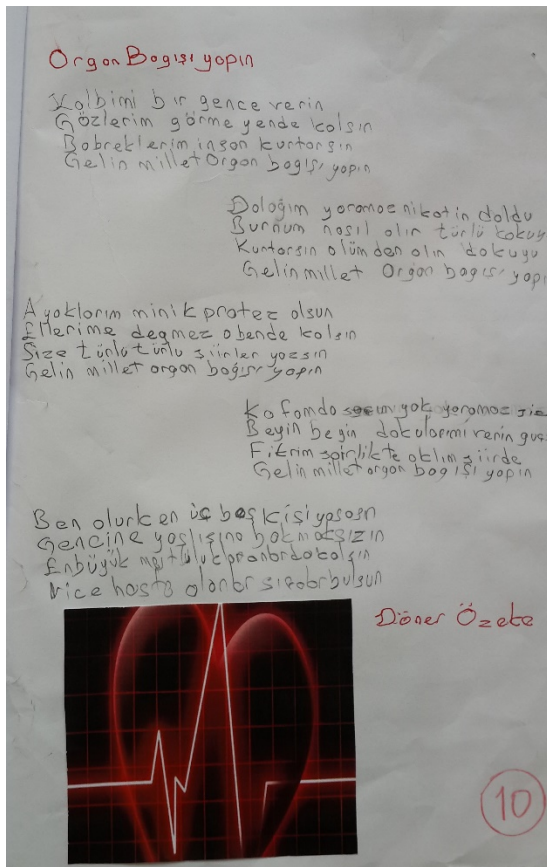 Organ Bagışı yapın
Kalbimi bir gence verin
Gözlerim görmeyende kalsın
Bobreklerim insan kurtarsın
Gelin millet Organ bagışı yapın
Dalağım yaramaz nikotin doldu
Burnum nasıl alır türlü koku
Kurtarsın olümden alın dokuyu
Gelin millet Organ bagışı yapı
Ayaklarım minik protez olsun
Ellerime degmez obende kalsın
Size türlü türlü şiirler yazsın
Gelin millet organ bağışı yapın
Kafamda yok yaramaz
Beyin beyin dokularımı verin
Fikrim şairlikte aklım şiirde
Gelin millet organ bagışı yapın
Ben olurken üç beş kişi yaşasın
Gencine yaşlısına bakmaksızın
Enbüyük mutluluk onlarda kalsın
Nice hasta olanlar şifalar bulsun
Döner Özete
10